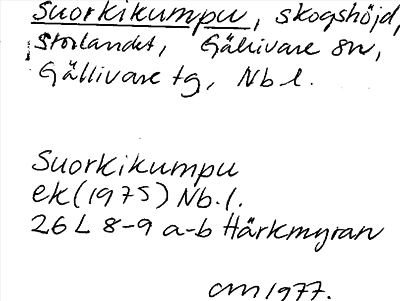 Suorkikumpu, skogshöjd,
Storlandet, Gällivare sn,
Gällivare tg, Nb l.
Suorkikumpu
ek (1975) Nb. l.
26 L 8-9 a-b Härkmyran
am 1977.